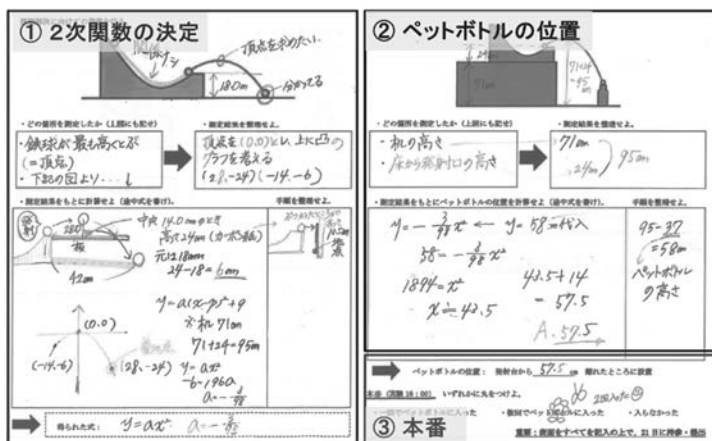 ① 2次関数の決定
頂点を求めたい
18.0m
分かってる
・どの個所を測定したか（上図にも記せ）
・測定結果を整理せよ。
・鉄球が最も高くとぶ
(=頂点)
・下記の図より…
頂点を(0.0)とし、上に凸の
グラフを考える
(28,-24)(-14,-6)
・測定結果をもとに計算せよ（途中式を書け）。
手順を整理せよ。
中央 14.0mのとき
高さ24cm(カーボン紙)
元は18mm
24-18=6cm
板
42cm
y=a(x-p)²+q
※机71cm
71+24=95m
y=ax²
-6=196a
a=-3/98
(0.0)
(-14,-6)
(28,-24)
得られた式：
y=ax²
② ペットボトルの位置
71cm
71+24
=95
・どの箇所を測定したか（上図にも記せ）
・測定結果を整理せよ。
・机の高さ
・床から発射口の高さ
71cm
24m
95m
・測定結果をもとにペットボトルの位置を計算せよ（途中式を書け）。
手順を整理せよ。
y=-3/98x² ← y=58m代入
58=-3/98x²
1894=x²
x≒43.5
43.5+14
=57.5
A.57.5
95-37
=58m
ペットボトル
の高さ
ペットボトルの位置：発射台から 57.5 cm 離れたところに設置
本番（実験 16：00） いずれかに丸をつけよ。
・一回でペットボトルに入った ・数回でペットボトルに入った ・入らなかった
③ 本番
重要：表面をすべてを記入の上で、21日に持参・提出